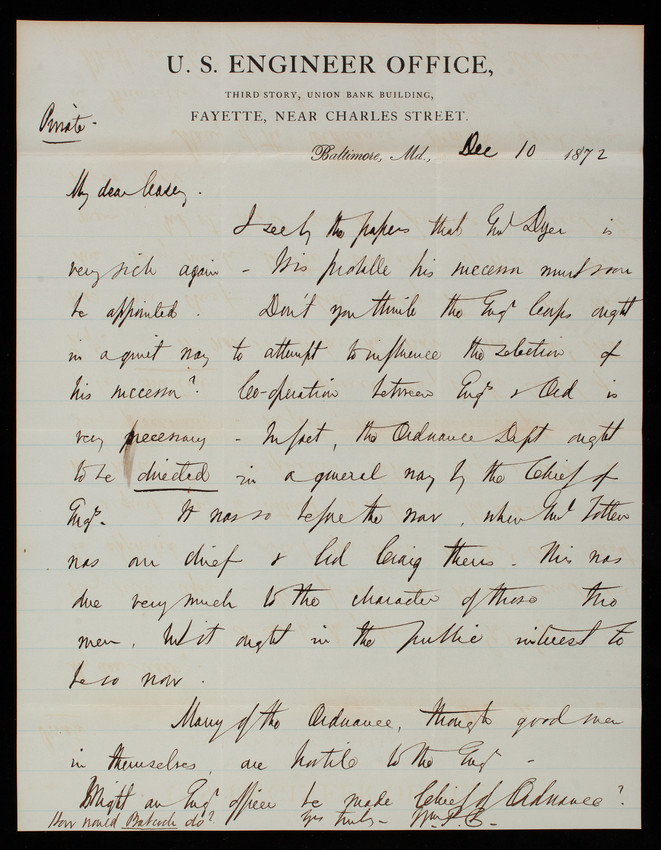 U. S. ENGINEER OFFICE,
THIRD STORY, UNION BANK BUILDING,
FAYETTE, NEAR CHARLES STREET.
Private.
Baltimore, Md., Dec 10 1872
My dear Casey.
I see by the papers that Gnl Dyer is
very sick again - It is probable his successor must soon
be appointed. Don't you think the Engr Corps ought
in a quiet way to attempt to influence the selection of
his successor? Co-operation between Engrs & Ord is
very necessary - In fact, the Ordnance Dept ought
to be directed in a general way by the Chief of
Engrs. It was so before the war, when Gnl Totten
was our chief & Col Craig theirs. This was
due very much to the character of those two
men. But it ought in the public interest to
be so now.
Many of the Ordnance, though good men
in themselves, are hostile to the Engrs -
Might an Engr officer be made Chief of Ordnance?
How would Babcock do? Yrs truly - Wm P. C.